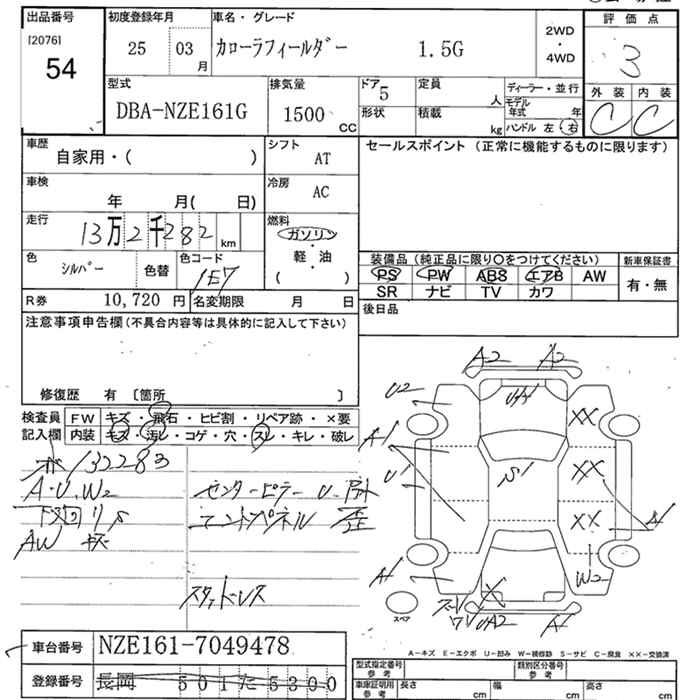 出品番号
[2076]
54
初度登録年月
25 03月
車名・グレード
カローラフィールダー 1.5G
2WD
・
4WD
評価点
3
型式
DBA-NZE161G
排気量
1500 CC
ドア 5
定員 人
形状
積載 kg
ディーラー・並行
モデル年式 年
ハンドル 左 右
外装 内装
C C
車歴
自家用・( )
シフト AT
車検 年 月( 日)
冷房 AC
走行
13万2千282 km
燃料
ガソリン
・
軽油
( )
色 シルバー 色替
色コード 1E7
R券 10,720 円
名変期限 月 日
セールスポイント (正常に機能するものに限ります)
装備品(純正品に限り○をつけてください)
新車保証書
PS PW ABS エアB AW
SR ナビ TV カワ
有・無
後日品
注意事項申告欄(不具合内容等は具体的に記入して下さい)
修復歴 有 〔箇所 〕
検査員記入欄
FW キズ・飛石・ヒビ割・リペア跡・×要
内装 キズ・汚レ・コゲ・穴・スレ・キレ・破レ
132283
A・U、W2
下回り S
AW キズ
センターピラー U
エンドパネル 歪
スタッドレス
A2 A2
U2
A1
U1
S1
XX
XX
XX
W2
A1
A1
X
UA2
A1
スペア
A-キズ E-エクボ U-凹み W-補修跡 S-サビ C-腐食 XX-交換済
車台番号 NZE161-7049478
登録番号 長岡 501た5300
型式指定番号 参考
類別区分番号 参考
車庫証明用 参考
長さ cm
幅 cm
高さ cm